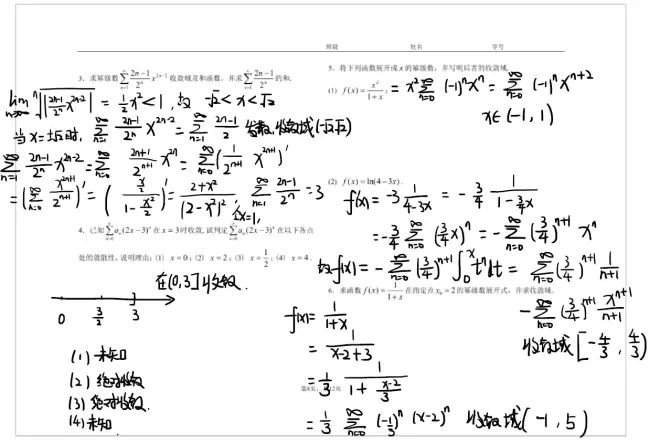 班级 姓名 学号
3. 求幂级数 $\sum_{n=1}^{\infty}\frac{2n-1}{2^n}x^{2n-2}$ 收敛域及和函数,并求 $\sum_{n=1}^{\infty}\frac{2n-1}{2^n}$ 的和.
$\lim_{n\to\infty}\sqrt[n]{\left|\frac{2n-1}{2^n}x^{2n-2}\right|}=\frac{1}{2}x^2<1$, 故 $-\sqrt{2}<x<\sqrt{2}$
当 $x=\pm\sqrt{2}$ 时, $\sum_{n=1}^{\infty}\frac{2n-1}{2^n}x^{2n-2}=\sum_{n=1}^{\infty}\frac{2n-1}{2}$ 发散, 收敛域 $(-\sqrt{2},\sqrt{2})$
$\sum_{n=1}^{\infty}\frac{2n-1}{2^n}x^{2n-2}=\sum_{n=0}^{\infty}\frac{2n+1}{2^{n+1}}x^{2n}=\sum_{n=0}^{\infty}\left(\frac{1}{2^{n+1}}x^{2n+1}\right)'$
$=\left(\sum_{n=0}^{\infty}\frac{x^{2n+1}}{2^{n+1}}\right)'=\left(\frac{\frac{x}{2}}{1-\frac{x^2}{2}}\right)'=\frac{2+x^2}{(2-x^2)^2}$, 令$x=1$, $\sum_{n=1}^{\infty}\frac{2n-1}{2^n}=3$
4. 已知 $\sum_{n=0}^{\infty}a_n(2x-3)^n$ 在 $x=3$ 时收敛, 试判定 $\sum_{n=0}^{\infty}a_n(2x-3)^n$ 在以下各点
处的敛散性, 说明理由: (1) $x=0$; (2) $x=2$; (3) $x=\frac{1}{2}$; (4) $x=4$.
在(0,3]收敛.
0 $\frac{3}{2}$ 3
(1) 未知
(2) 绝对收敛
(3) 绝对收敛.
(4) 未知
5. 将下列函数展开成 x 的幂级数, 并写明后者的收敛域.
(1) $f(x)=\frac{x^2}{1+x}$; $=x^2\sum_{n=0}^{\infty}(-1)^nx^n=\sum_{n=0}^{\infty}(-1)^nx^{n+2}$
$x\in(-1,1)$
(2) $f(x)=\ln(4-3x)$.
$f'(x)=-3\frac{1}{4-3x}=-\frac{3}{4}\frac{1}{1-\frac{3}{4}x}$
$=-\frac{3}{4}\sum_{n=0}^{\infty}\left(\frac{3}{4}x\right)^n=-\sum_{n=0}^{\infty}\left(\frac{3}{4}\right)^{n+1}x^n$
故 $f(x)=-\sum_{n=0}^{\infty}\left(\frac{3}{4}\right)^{n+1}\int_0^xt^ndt=\sum_{n=0}^{\infty}\left(\frac{3}{4}\right)^{n+1}\frac{1}{n+1}$
$-\sum_{n=0}^{\infty}\left(\frac{3}{4}\right)^{n+1}\frac{x^{n+1}}{n+1}$
收敛域 $\left[-\frac{4}{3},\frac{4}{3}\right)$
6. 求函数 $f(x)=\frac{1}{1+x}$ 在指定点 $x_0=2$ 的幂级数展开式, 并求收敛域.
$f(x)=\frac{1}{1+x}$
$=\frac{1}{x-2+3}$
$=\frac{1}{3}\frac{1}{1+\frac{x-2}{3}}$
$=\frac{1}{3}\sum_{n=0}^{\infty}\left(-\frac{1}{3}\right)^n(x-2)^n$ 收敛域 $(-1,5)$